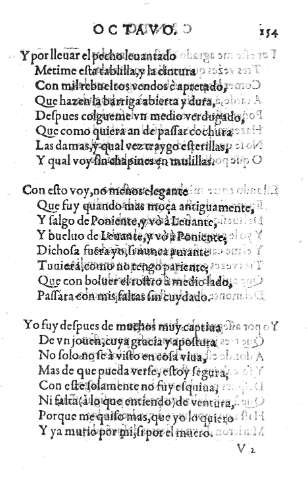 OCTAVO. 154
Y por lleuar el pecho leuantado
Metime esta tablilla, y la cintura
Con mil rebueltos vendos è apretado,
Que hazen la barriga abierta y dura,
Despues colgueme vn medio verdugado,
Que como quiera an de passar cochura
Las damas, y qual vez traygo esterillas,
Y qual voy sin chapines en mulillas.
Con esto voy, no menos elegante
Que fuy quando mas moça antiguamente,
Y salgo de Poniente, y vò à Leuante,
Y bueluo de Leuante, y vò à Poniente,
Dichosa fuera yo, si nunca amante
Tuuiera, como no tengo pariente,
Que con boluer el rostro à medio lado,
Passara con mis faltas sin cuydado.
Yo fuy despues de muchos muy captiua
De vn jouen, cuya gracia y apostura
No solo no se à visto en cosa viua,
Mas de que pueda verse, estoy segura,
Con este solamente no fuy esquiua,
Ni falta (à lo que entiendo) de ventura,
Porque me quiso mas, que yo lo quiero
Y ya murio por mi, si por el muero.
V 2